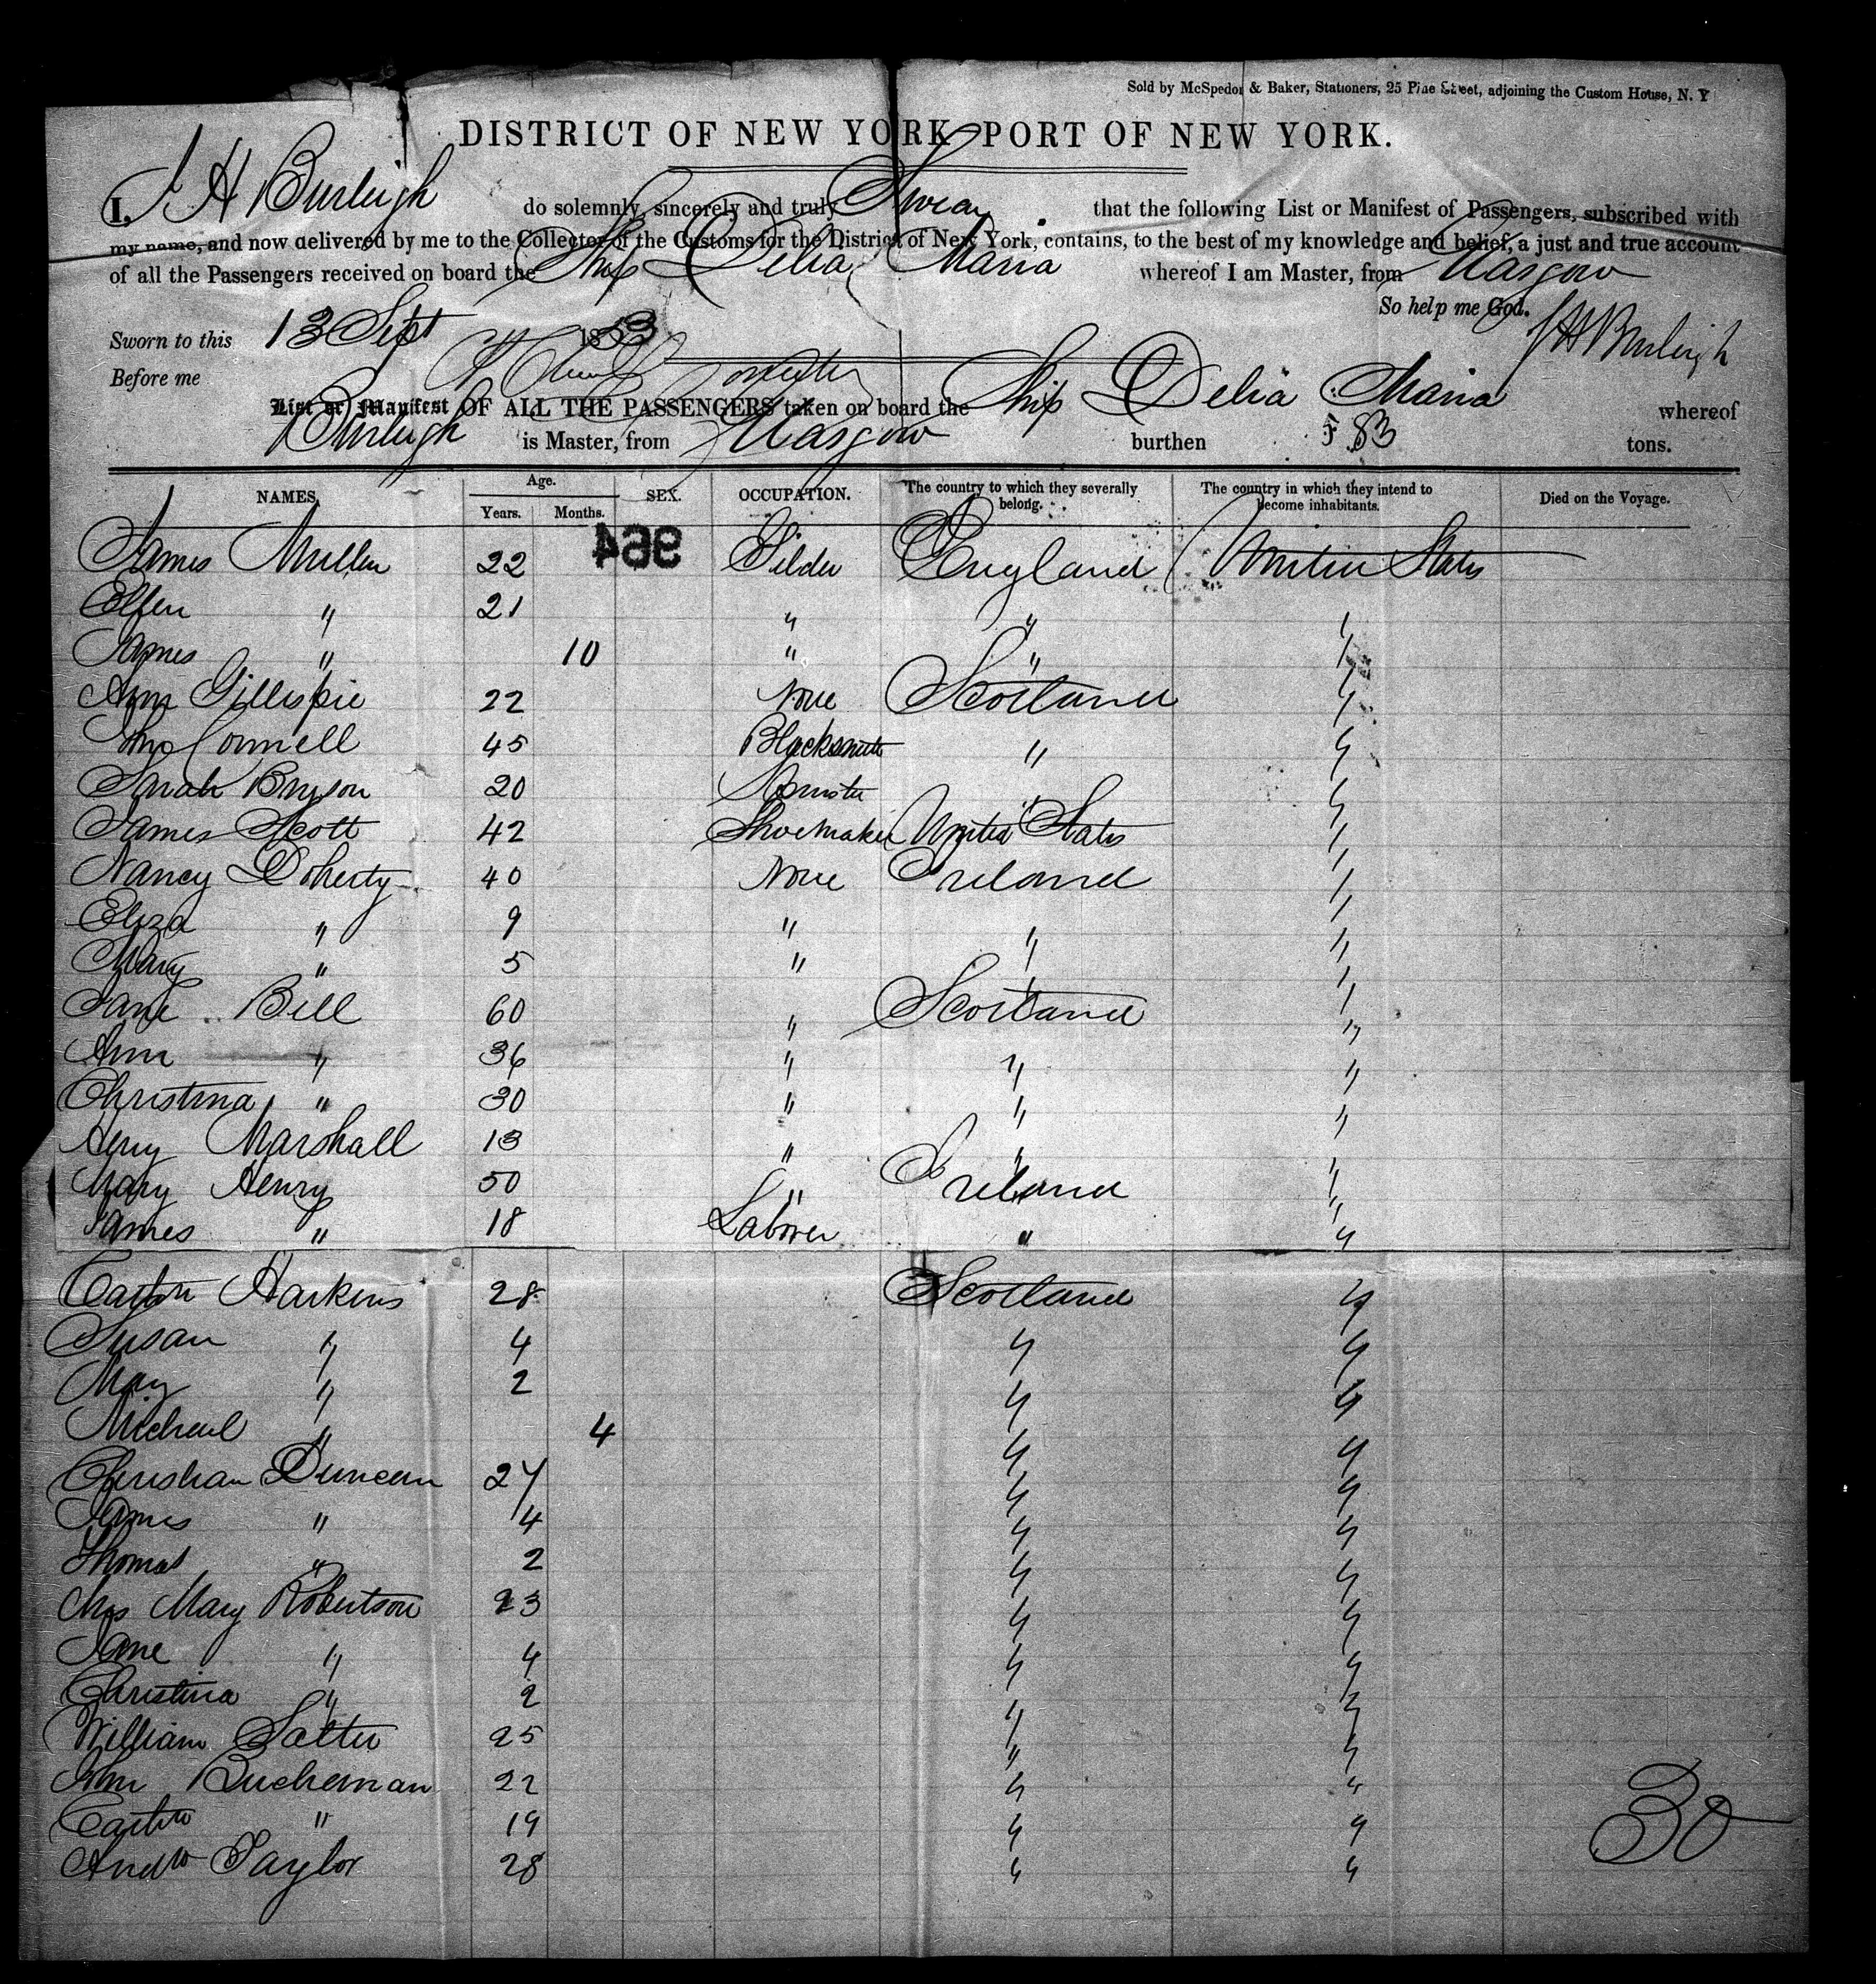 Sold by McSpedon & Baker, Stationers, 25 Pine Street, adjoining the Custom House, N. Y
DISTRICT OF NEW YORK PORT OF NEW YORK.
I, J H Burleigh do solemnly, sincerely and truly Swear that the following List or Manifest of Passengers, subscribed with
my name, and now delivered by me to the Collector of the Customs for the District of New York, contains, to the best of my knowledge and belief, a just and true account
of all the Passengers received on board the Ship Delia Maria whereof I am Master, from Glasgow
So help me God.
Sworn to this 13 Sept 1853 J H Burleigh
Before me
List or Manifest OF ALL THE PASSENGERS taken on board the Ship Delia Maria whereof
Burleigh is Master, from Glasgow burthen 583 tons.
NAMES. Age. Years. Months. SEX. OCCUPATION. The country to which they severally belong. The country in which they intend to become inhabitants. Died on the Voyage.
964
James Mullen 22 Gilder England United States
Ellen " 21 " " "
James " 10 " " "
Ann Gillispie 22 None Scotland "
Jno Connell 45 Blacksmith " "
Sarah Bryson 20 " "
James Scott 42 Shoemaker United States "
Nancy Doherty 40 None Ireland "
Eliza " 9 " " "
Mary " 5 " " "
Jane Bell 60 " Scotland "
Ann " 36 " " "
Christina " 30 " " "
Marshall 13 " " "
Mary Henry 50 " Ireland "
James " 18 Laborer " "
Harkens 28 Scotland "
Susan " 4 " "
May " 2 " "
Micheal " 4 " "
Christian Duncan 27 " "
James " 4 " "
Thomas " 2 " "
Mrs Mary Robertson 23 " "
Jane " 4 " "
Christina " 2 " "
William Salter 25 " "
Jhn Buchannan 22 " "
" 19 " "
Andw Taylor 28 " "
30